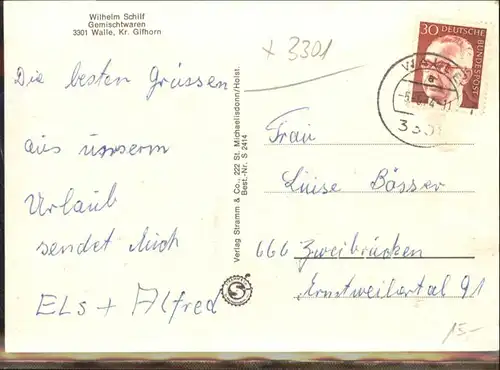 Wilhelm Schilf
Gemischtwaren
3301 Walle, Kr. Gifhorn
x 3301
30 DEUTSCHE BUNDESPOST
WALLE
a
3301
Die besten Grüssen
aus unserm
Urlaub
sendet Dich
ELs + Alfred
Verlag Stramm & Co., 222 St. Michaelisdonn/Holst.
Best.-Nr. S 2414
S
Frau
Luise Bösser
666 Zweibrücken
Ernstweilertal 91
15.-